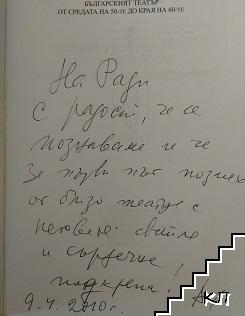 БЪЛГАРСКИЯТ ТЕАТЪР
ОТ СРЕДАТА НА 50-ТЕ ДО КРАЯ НА 60-ТЕ
На Ради
с радост, че се
познаваме и че
за първи път
от близо театъра с
неговите
и сърдечна
подкрепа!
9.4.2010 г.
АКП